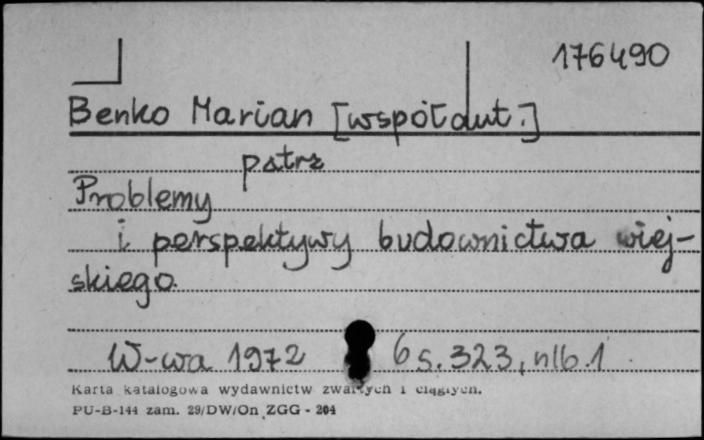 176490
Benko Marian [współaut.]
patrz
Problemy
i perspektywy budownictwa wiej-
skiego.
W-wa 1972 6 s. 323, nlb. 1
Karta katalogowa wydawnictw zwartych i ciągłych.
PU-B-144 zam. 29/DW/On ZGG - 204